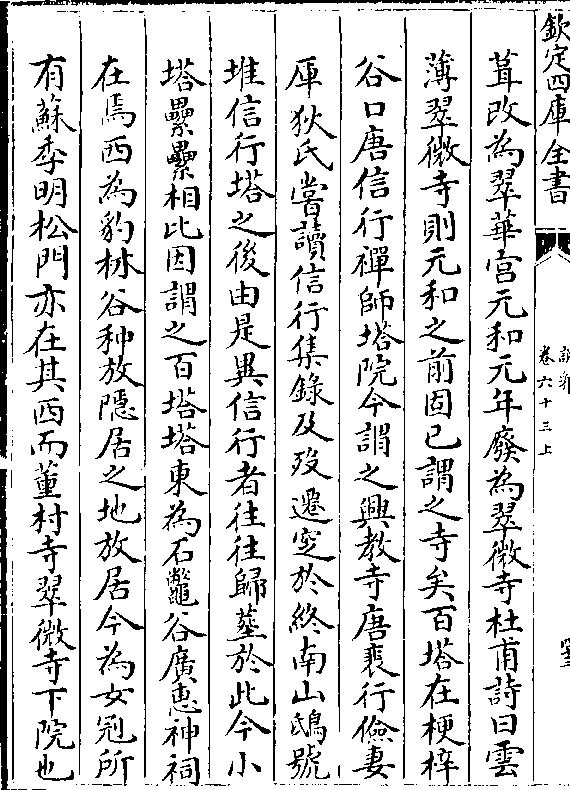 欽定四庫全書
說郛
卷六十三上
葺改為翠華宫元和元年廢為翠微寺杜甫詩曰雲
薄翠微寺則元和之前固已謂之寺矣百塔在梗梓
谷口唐信行禪師塔院今謂之興教寺唐裴行儉妻
厙狄氏嘗讀信行集錄及歿遷窆於終南山鴟號
堆信行塔之後由是異信行者往往歸葬於此今小
塔纍纍相比因謂之百塔塔東為石鼈谷廣惠神祠
在焉西為豹林谷种放隱居之地放居今為女冠所
有蘇季明松門亦在其西而董村寺翠微寺下院也